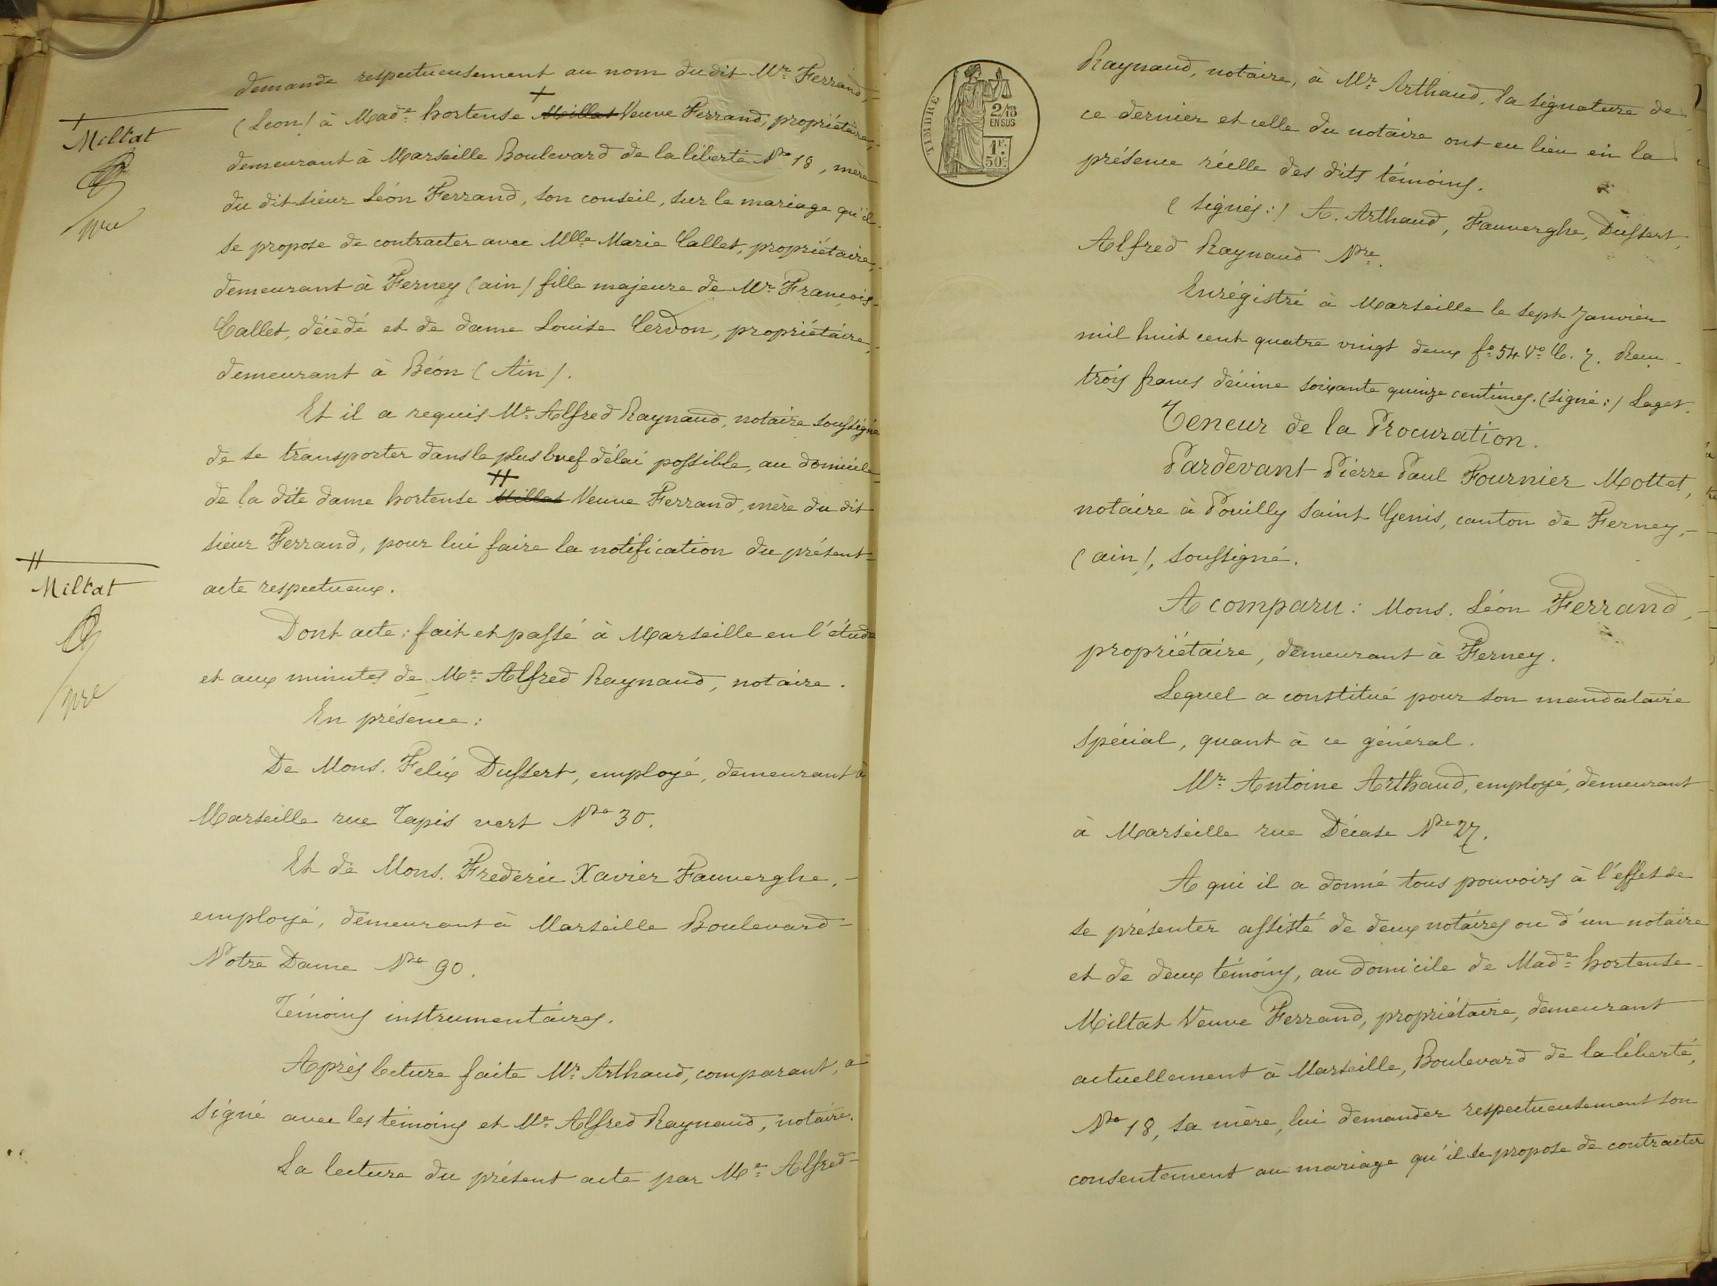 demande respectueusement au nom du dit Mr Ferrand,
(Léon) à Made hortense Millat Veuve Ferrand, propriétaire,
demeurant à Marseille Boulevard de la liberté No 18, mère
du dit sieur Léon Ferrand, son conseil, sur le mariage qu'il
se propose de contracter avec Mlle Marie Callet, propriétaire,
demeurant à Ferney (ain) fille majeure de Mr François
Callet, décédé et de dame Louise Cerdon, propriétaire,
demeurant à Béon (Ain).
Et il a requis Me Alfred Raynaud, notaire soussigné
de se transporter dans le plus bref délai possible, au domicile
de la dite dame hortense Millat Veuve Ferrand, mère du dit
sieur Ferrand, pour lui faire la notification du présent
acte respectueux.
Dont acte: fait et passé à Marseille en l'étude
et aux minutes de Me Alfred Raynaud, notaire.
En présence:
De Mons. Felix Dussert, employé, demeurant à
Marseille rue Tapis vert No 30.
Et de Mons. Frederic Xavier Fauverghe,
employé, demeurant à Marseille Boulevard
Notre Dame No 90.
Témoins instrumentaires.
Après lecture faite Mr Arthaud, comparant, a
signé avec les témoins et Me Alfred Raynaud, notaire.
La lecture du présent acte par Me Alfred
+
Miltat
#
Miltat
TIMBRE
2/10
EN SUS
1F.
50c
Raynaud, notaire, à Mr Arthaud, la signature de
ce dernier et celle du notaire ont eu lieu en la
présence réelle des dits témoins.
(signés:) A. Arthaud, Fauverghe, Dussert,
Alfred Raynaud Nre.
Enrégistré à Marseille le sept Janvier
mil huit cent quatre vingt deux fo 54 Vo C. 7. Reçu
trois francs décime soixante quinze centimes. (signé:) Laget.
Teneur de la Procuration.
Pardevant Pierre Paul Fournier Mottet,
notaire à Pouilly Saint Genis, canton de Ferney,
(ain), soussigné.
A comparu: Mons. Léon Ferrand,
propriétaire, demeurant à Ferney.
Lequel a constitué pour son mandataire
spécial, quant à ce général.
Mr Antoine Arthaud, employé, demeurant
à Marseille rue Décase No 27.
A qui il a donné tous pouvoirs à l'effet de
se présenter assisté de deux notaires ou d'un notaire
et de deux témoins, au domicile de Made hortense
Miltat Veuve Ferrand, propriétaire, demeurant
actuellement à Marseille, Boulevard de la liberté,
No 18, sa mère, lui demander respectueusement son
consentement au mariage qu'il se propose de contracter